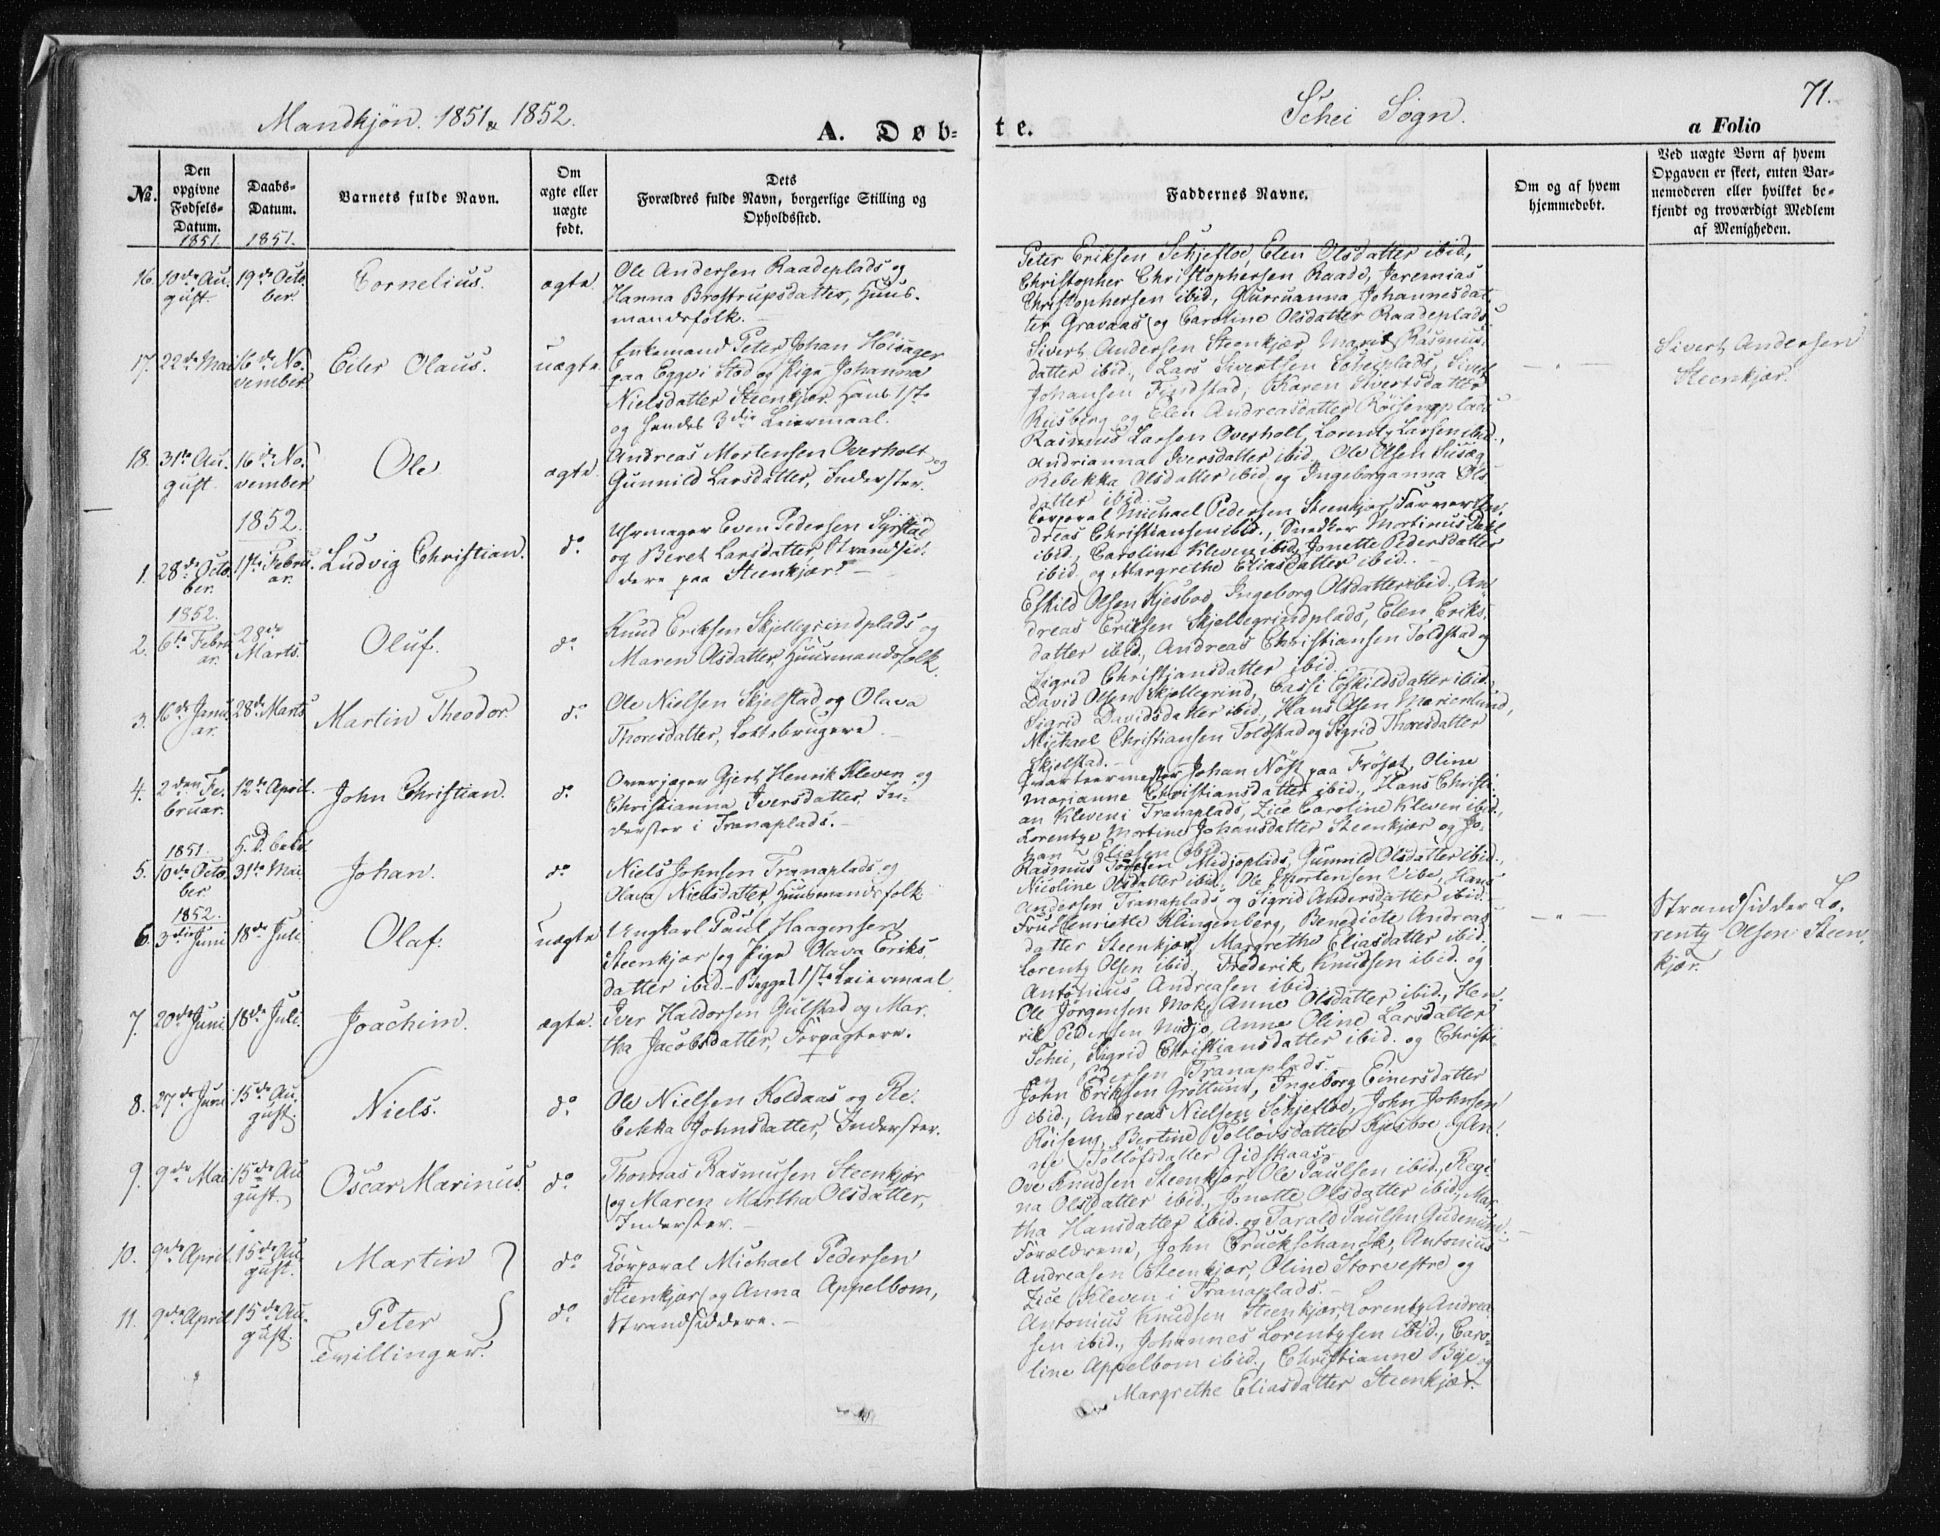 Mandkjøn. 1851 & 1852.
A. Døb-
te.
Schei Sogn.
71.
a Folio
No.
Den opgivne Fødsels-Datum.
Daabs-Datum.
Barnets fulde Navn.
Om ægte eller uægte født.
Dets Forældres fulde Navn, borgerlige Stilling og Opholdssted.
Faddernes Navne.
Om og af hvem hjemmedøbt.
Ved uægte Børn af hvem Opgaven er skeet, enten Barnemoderen eller hvilket bekjendt og troværdigt Medlem af Menigheden.
1851. 1851.
16. 10de Au- 19de Octo- Cornelius. ægte. Ole Andersen Raadeplads og
gust. ber. Hanna Brostrupsdatter, Huus-
mandsfolk.
Peter Eriksen Schjefloe, Elen Olsdatter ibid,
Christopher Christophersen Raade, Jeremias
Christophersen ibid, Gurruanna Johannesdat-
ter Gravaas og Caroline Olsdatter Raadeplads.
17. 22de Mai 16de No- Eiler Olaus. uægte Enkemand Peter Johan Hoisager
vember paa Egge i Stod og Pige Johanna
Nielsdatter Steenkjær. Hans 1ste
og hendes 3die Leiermaal.
Sivert Andersen Steenkjær, Marit Rasmus-
datter ibid., Lars Sivertsen Scheiplads, Sivert
Johansen Findstad, Karen Sivertsdatter
Riisberg og Elen Andreasdatter Røisengplads
Sivert Andersen
Steenkjær.
18. 31te Au- 16de No- Ole ægte. Andreas Mortensen Overholt og
gust. vember Gunnild Larsdatter, Inderster.
Rasmus Larsen Overholt, Lorents Larsen ibid.,
Andrianna Iversdatter ibid., Ole Olsen Susæg
Rebekka Olsdatter ibid og Ingeborganna Ols-
datter ibid.
1852.
1. 28de Octo- 1ste Febru- Ludvig Christian. do Uhrmager Even Pedersen Syrstad
ber. ar. og Beret Larsdatter, Strandsid-
dere paa Steenkjær.
Corporal Michael Pedersen Steenkjær, Farver An-
dreas Christiansen ibid., Snedker Mortinus Dahl
ibid., Caroline Kleven ibid, Jonette Pedersdatter
ibid og Margrethe Eliasdatter ibid.
1852.
2. 6te Febru- 28de Oluf. do Knud Eriksen Skjellegrindplads og
ar. Marts. Maren Olsdatter, Huusmandsfolk.
Eskild Olsen Kjesboe, Ingeborg Olsdatter ibid., An-
dreas Eriksen Skjellegrindplads, Elen Eriks-
datter ibid., Andreas Christiansen Toldstad og
Sigrid Christiansdatter ibid.
3. 16de Janu- 28de Marts Martin Theodor. do Ole Nielsen Skjelstad og Olava
ar. Thoresdatter, Lottebrugere.
David Olsen Skjellegrind, Cassi Eskildsdatter ibid.,
Sigrid Davidsdatter ibid, Hans Olsen Marienlund,
Michael Christiansen Toldstad og Sigrid Thoresdatter
Skjelstad.
4. 2den Fe- 12te April. John Christian. do Overjæger Gjert Henrik Kleven og
bruar. Christianna Iversdatter, In-
derster i Tranaplads.
Qvarteermester Johan Nøst paa Frøset, Oline
Marianne Christiansdatter ibid., Hans Christi-
an Kleven i Tranaplads, Zice Caroline Kleven ibid.,
Lorentze Martine Johansdatter Steenkjær og Jo-
han Eliasen ibid.
1851.
5. 10de Octo- 31te Mai. Johan. do Niels Johnsen Tranaplads og
ber Olava Nielsdatter, Huusmandsfolk
Rasmus Toresen Midjoplads, Gunnild Olsdatter ibid.,
Nicoline Olsdatter ibid., Ole Mortensen Vibe, Hans
Andersen Tranaplads og Sigrid Andersdatter ibid.
1852.
6. 3die Juni 18de Juli Olaf. uægte Ungkarl Paul Haagensen
Steenkjær og Pige Olava Eriks-
datter ibid. Begges 1ste Leiermaal.
Frue Henriette Klingenberg, Benedicte Andreas-
datter Steenkjær, Margrethe Eliasdatter ibid,
Lorents Olsen ibid, Frederik Knudsen ibid. og
Antonius Andreasen ibid.
Strandsidder Lo-
rentz Olsen Steen-
kjær.
7. 20de Juni 18de Juli. Joachim. ægte. Iver Haldorsen Gulstad og Mar-
tha Jacobsdatter, Forpagtere.
Ole Jørgensen Mok, Anne Olsdatter ibid., Hen-
rik Pedersen Midjo, Anne Oline Larsdatter
Schei, Sigrid Christiansdatter ibid. og Christi-
an Pedersen Tranaplads.
8. 27de Juni 15de Au- Niels. do Ole Nielsen Koldaas og Re-
gust. bekka Johnsdatter, Inderster.
John Eriksen Grøttunt, Ingeborg Einersdatter
ibid., Andreas Nielsen Schjefloe, John Johnsen
Røiseng, Bertine Tolløvsdatter Kjesboe og An-
ne Tolløfsdatter Gidskaas.
9. 9de Mai 15de Au- Oscar Marinus. do Thomas Rasmussen Steenkjær
gust. og Maren Martha Olsdatter,
Inderster.
Ove Knudsen Steenkjær, Ole Paulsen ibid., Regi-
na Olsdatter ibid., Jonette Olsdatter ibid., Mar-
tha Hansdatter ibid. og Tarald Paulsen Gudenim.
10. 9de April. 15de Au- Martin do Corporal Michael Pedersen
gust. Steenkjær og Anna Appelbom,
Forældrene, John Cruckschanck, Antonius
Andreasen Steenkjær, Oline Storvestre og
Zice Kleven i Tranaplads.
11. 9de April 15de Au- Peter do Strandsiddere.
gust. Tvillinger.
Antonius Knudsen Steenkjær, Lorents Andrea-
sen ibid., Johannes Lorentzsen ibid., Caro-
line Appelbom ibid., Christianne Beje og
Margrethe Eliasdatter Steenkjær.